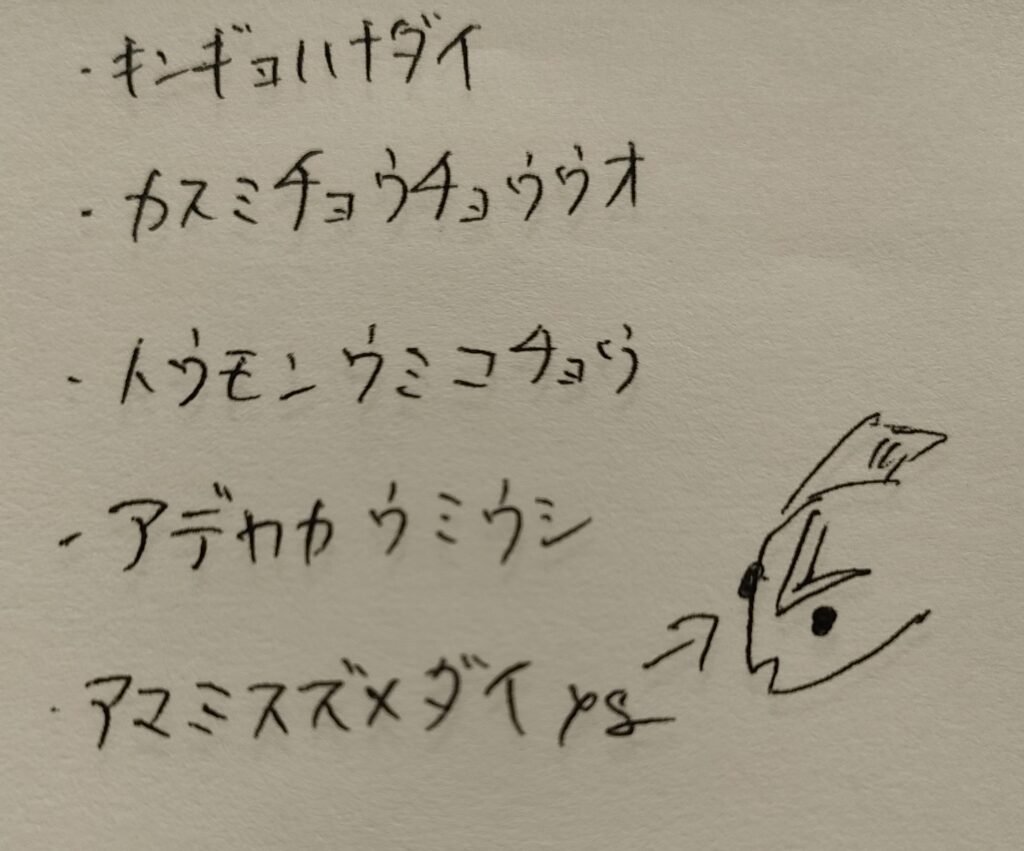 ・キンギョハナダイ
・カスミチョウチョウウオ
・トウモンウミコチョウ
・アデヤカウミウシ
・アマミスズメダイ ys